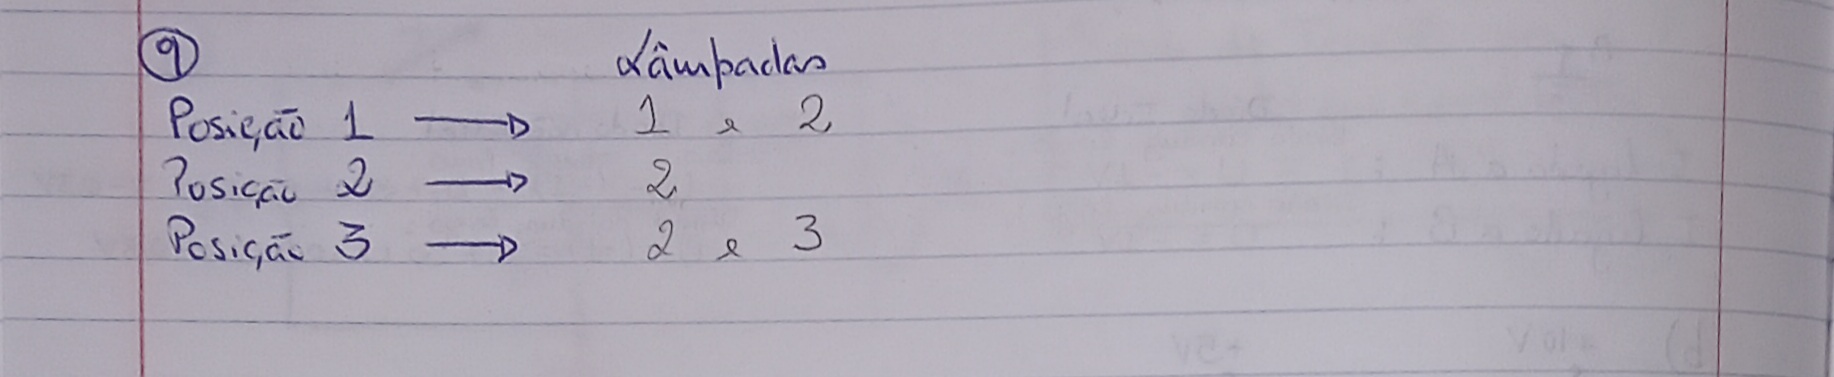 9
Lâmpadas
Posição 1 → 1 e 2
Posição 2 → 2
Posição 3 → 2 e 3
b) +10 V +5V